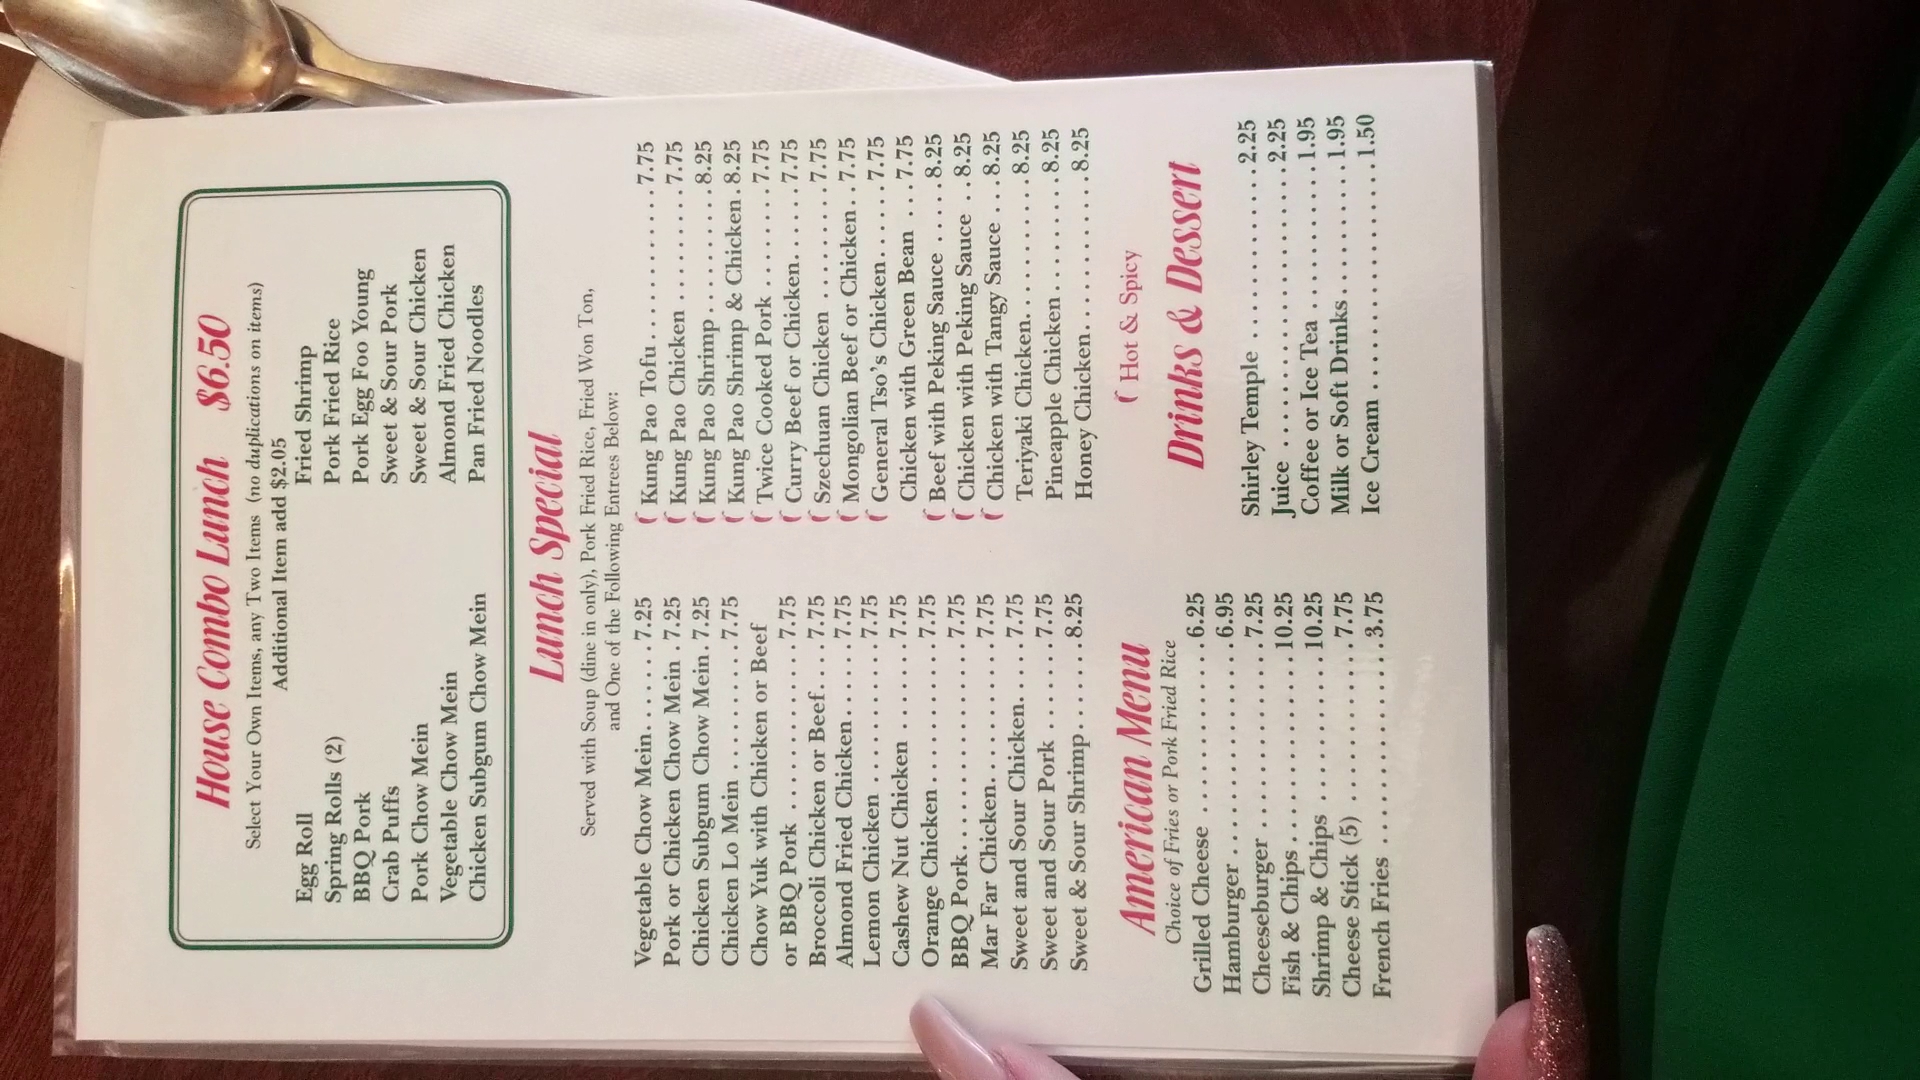 House Combo Lunch $6.50
Select Your Own Items, any Two Items (no duplications on items)
Additional Item add $2.05
Egg Roll
Spring Rolls (2)
BBQ Pork
Crab Puffs
Pork Chow Mein
Vegetable Chow Mein
Chicken Subgum Chow Mein
Fried Shrimp
Pork Fried Rice
Pork Egg Foo Young
Sweet & Sour Pork
Sweet & Sour Chicken
Almond Fried Chicken
Pan Fried Noodles
Lunch Special
Served with Soup (dine in only), Pork Fried Rice, Fried Won Ton,
and One of the Following Entrees Below:
Vegetable Chow Mein . . . . . . . 7.25
Pork or Chicken Chow Mein . 7.25
Chicken Subgum Chow Mein . 7.25
Chicken Lo Mein . . . . . . . . . . 7.75
Chow Yuk with Chicken or Beef
or BBQ Pork . . . . . . . . . . . . . 7.75
Broccoli Chicken or Beef . . . . 7.75
Almond Fried Chicken . . . . . . 7.75
Lemon Chicken . . . . . . . . . . . 7.75
Cashew Nut Chicken . . . . . . . 7.75
Orange Chicken . . . . . . . . . . . 7.75
BBQ Pork . . . . . . . . . . . . . . . 7.75
Mar Far Chicken . . . . . . . . . . 7.75
Sweet and Sour Chicken . . . . . 7.75
Sweet and Sour Pork . . . . . . . 7.75
Sweet & Sour Shrimp . . . . . . . 8.25
Kung Pao Tofu . . . . . . . . . . . . 7.75
Kung Pao Chicken . . . . . . . . . 7.75
Kung Pao Shrimp . . . . . . . . . . 8.25
Kung Pao Shrimp & Chicken . 8.25
Twice Cooked Pork . . . . . . . . 7.75
Curry Beef or Chicken . . . . . . 7.75
Szechuan Chicken . . . . . . . . . 7.75
Mongolian Beef or Chicken . . 7.75
General Tso's Chicken . . . . . . 7.75
Chicken with Green Bean . . . 7.75
Beef with Peking Sauce . . . . . 8.25
Chicken with Peking Sauce . . 8.25
Chicken with Tangy Sauce . . . 8.25
Teriyaki Chicken . . . . . . . . . . 8.25
Pineapple Chicken . . . . . . . . . 8.25
Honey Chicken . . . . . . . . . . . 8.25
Hot & Spicy
American Menu
Choice of Fries or Pork Fried Rice
Grilled Cheese . . . . . . . . . . . . 6.25
Hamburger . . . . . . . . . . . . . . 6.95
Cheeseburger . . . . . . . . . . . . 7.25
Fish & Chips . . . . . . . . . . . . 10.25
Shrimp & Chips . . . . . . . . . . 10.25
Cheese Stick (5) . . . . . . . . . . . 7.75
French Fries . . . . . . . . . . . . . 3.75
Drinks & Dessert
Shirley Temple . . . . . . . . . . . . 2.25
Juice . . . . . . . . . . . . . . . . . . . 2.25
Coffee or Ice Tea . . . . . . . . . . 1.95
Milk or Soft Drinks . . . . . . . . . 1.95
Ice Cream . . . . . . . . . . . . . . . 1.50